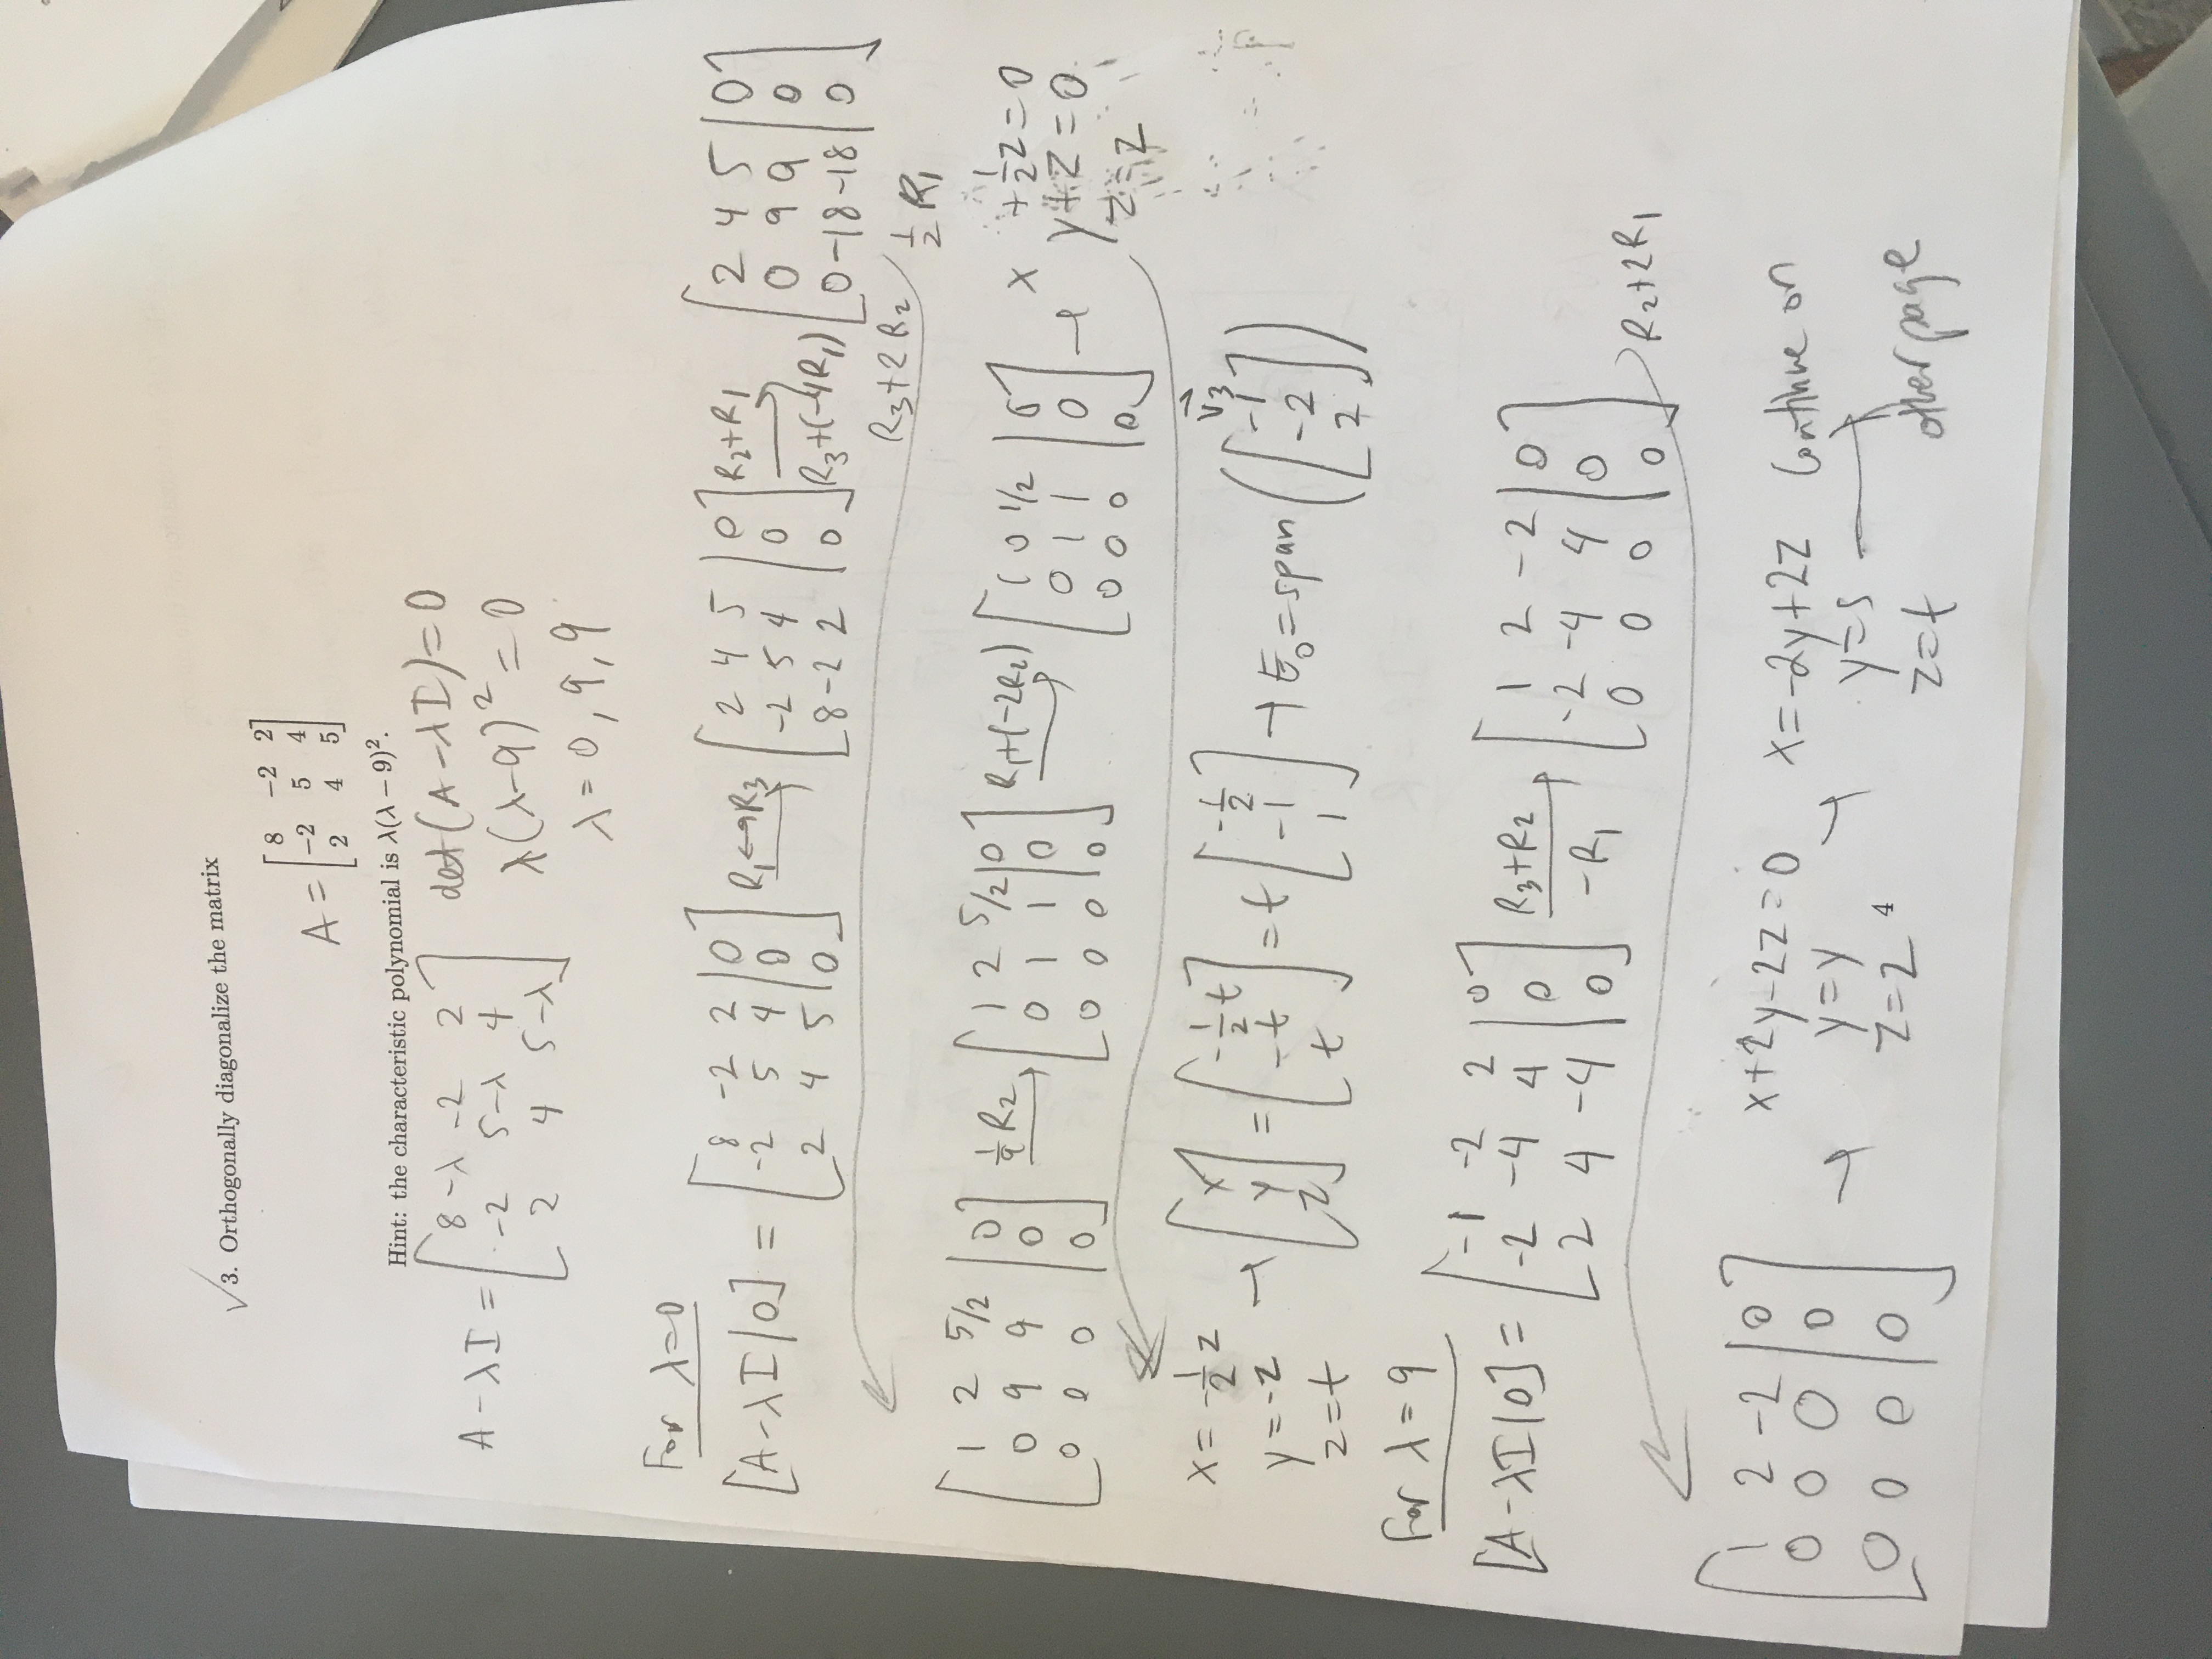 √3. Orthogonally diagonalize the matrix
A = [8 −2 2
−2 5 4
2 4 5]
Hint: the characteristic polynomial is λ(λ − 9)².
A - λI = [8-λ -2 2
-2 5-λ 4
2 4 5-λ]
det(A-λI)=0
λ(λ-9)² = 0
λ = 0, 9, 9
For λ=0
[A-λI|0] = [8 -2 2 | 0
-2 5 4 | 0
2 4 5 | 0]
R₁↔R₃
[2 4 5 | 0
-2 5 4 | 0
8 -2 2 | 0]
R₂+R₁
R₃+(-4R₁)
[2 4 5 | 0
0 9 9 | 0
0 -18 -18 | 0]
R₃+2R₂ ½R₁
[1 2 5/2 | 0
0 9 9 | 0
0 0 0 | 0]
1/9 R₂
[1 2 5/2 | 0
0 1 1 | 0
0 0 0 | 0]
R₁+(-2R₂)
[1 0 1/2 | 0
0 1 1 | 0
0 0 0 | 0]
→ x +½z=0
y+z=0
z=z
x = -½z
y = -z
z = t
→ [x
y
z] = [-½t
-t
t] = t [-½
-1
1] → E₀ = span([-1
-2
2])
v⃗₃
For λ=9
[A-λI|0] = [-1 -2 2 | 0
-2 -4 4 | 0
2 4 -4 | 0]
R₃+R₂
-R₁
[1 2 -2 | 0
-2 -4 4 | 0
0 0 0 | 0]
R₂+2R₁
[1 2 -2 | 0
0 0 0 | 0
0 0 0 | 0]
→ x+2y-2z=0
y=y
z=z
→ x=-2y+2z
y=s
z=t
→ Continue on
other page
4